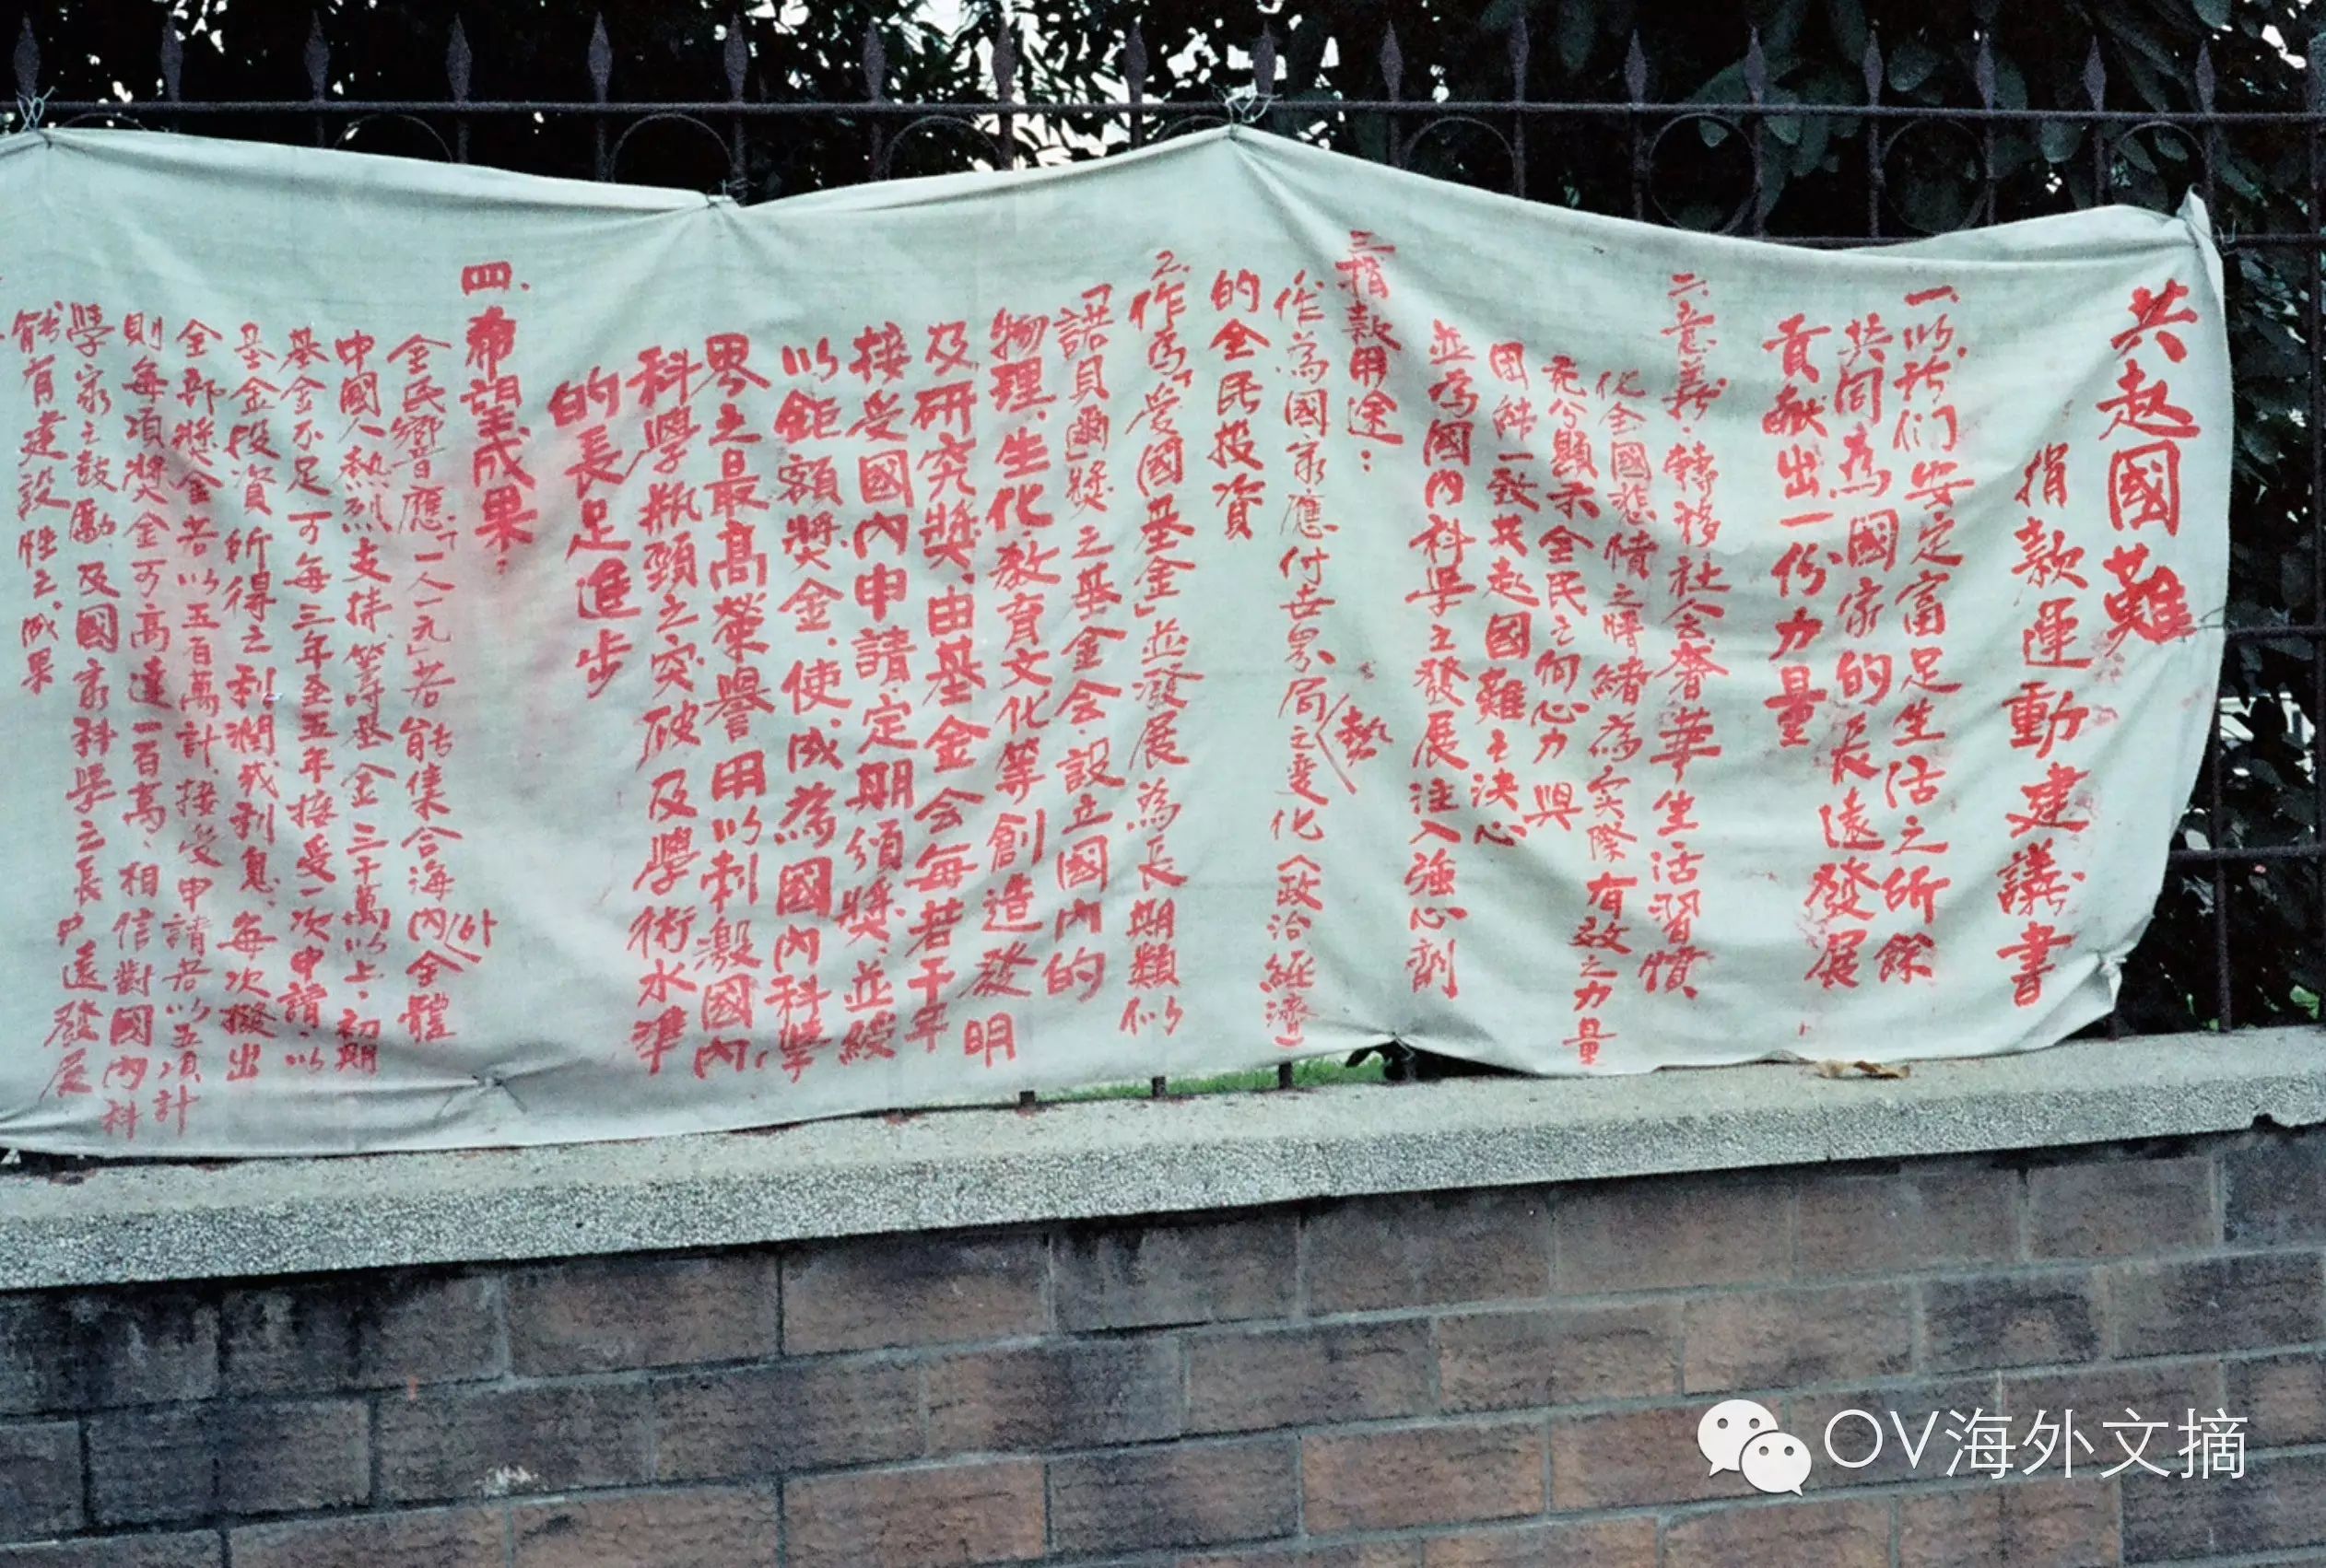 共赴國難
捐款運動建議書
一.以我們安定富足生活之所餘
共同為國家的長遠發展
貢獻出一份力量
二.意義:轉移社会奢華生活習慣
化全國悲憤之情緒為实際有效之力量
充分顯示全民之向心力與
团結一致共赴國難之決心
並為國内科學之發展注入強心劑
三.捐款用途:
作為國家應付世界局勢之變化(政治經濟)
的全民投資
2.作為「愛國基金」並發展為長期類似
「諾貝爾」獎之基金会.設立國内的
物理、生化、教育文化等創造發明
及研究獎、由基金会每若干年
接受國内申請、定期頒獎、並綬
以鉅額獎金、使成為國内科學
界之最高榮譽用以刺激國内
科學瓶頸之突破及學術水準
的長足進步
四.希望成果:
全民響應「一人一元」若能集合海内外全體
中國人熱烈支持、籌基金三千萬以上、初期
基金不足可每三年至五年接受一次申請、以
基金投資所得之利潤或利息、每次撥出
全部獎金若以五百萬計.接受申請者以五項計
則每項獎金可高達一百萬、相信對國内科
學家之鼓勵、及國家科學之長户遠發展
能有建設性之成果
OV海外文摘